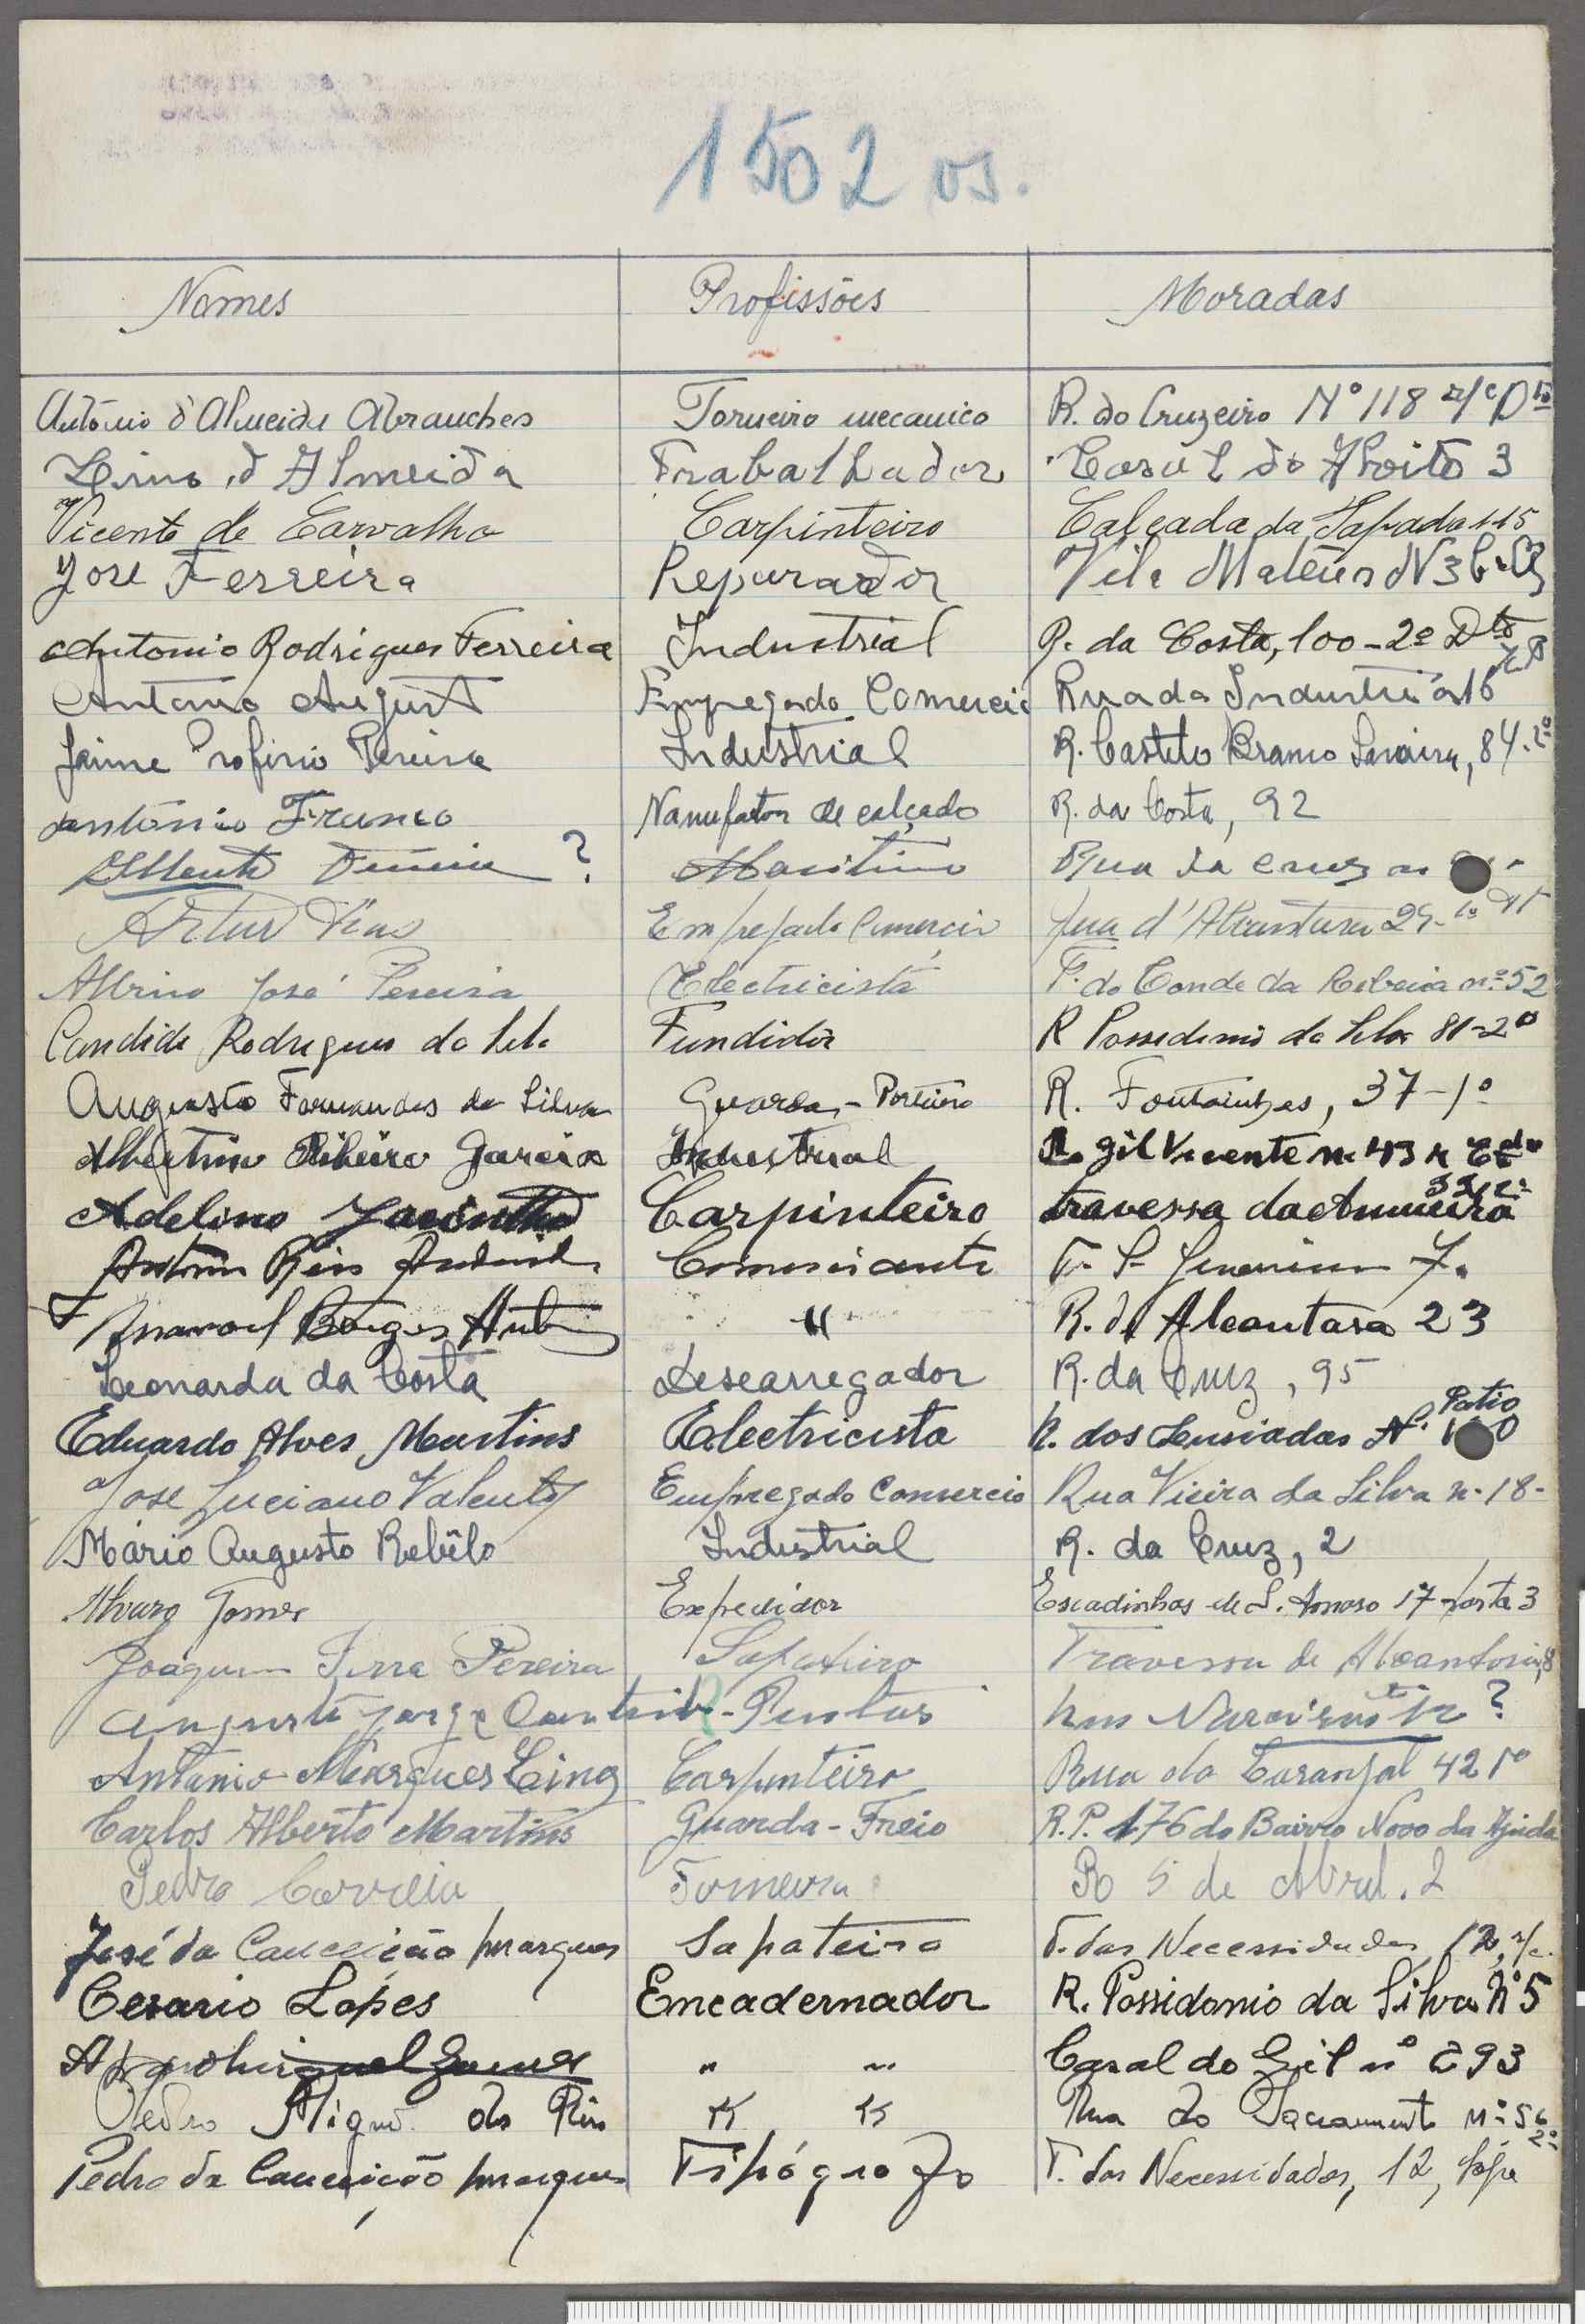 1502 os.
Nomes Profissões Moradas
António d'Almeida Abranches Torneiro mecanico R. do Cruzeiro Nº 118 r/c Dto
Lino d'Almeida Trabalhador Casal do Alvito 3
Vicente de Carvalho Carpinteiro Calçada da Tapada 115
José Ferreira Reparador Vila Mateus N 3
Antonio Rodrigues Ferreira Industrial R. da Costa, 100-2º Dto
Antonio August Empregado Comercio Rua da Industria 16
Jaime Profirio Pereira Industrial R. Castelo Branco Saraiva, 84-2º
António Franco Manufator de calçado R. da Costa, 92
? Maritimo Rua da Cruz
Artur Dias Empregado Comercio Rua d'Alcantara 29-1º
Albino José Pereira Electricista T. do Conde da Ribeira nº 52
Candido Rodrigues da Silva Fundidor R Possedonio da Silva 81-2º
Augusto Fernandes da Silva Guarda-Portão R. Fontainhas, 37-1º
Albertino Ribeiro Garcia Industrial R. Gil Vicente n. 43
Adelino Jacintho Carpinteiro travessa da
Antonio Reis Comerciante T. S. 7.
Manoel Borges " R. d'Alcantara 23
Leonardo da Costa Descarregador R. da Cruz, 95
Eduardo Alves Martins Electricista R. dos Lusiadas Nº Patio
José Luciano Valente Empregado Comercio Rua Vieira da Silva n. 18-
Mário Augusto Rebêlo Industrial R. da Cruz, 2
Alvaro Gomes Expedidor Escadinhas de S. Amaro 17-porta 3
Joaquim Pereira Sapateiro Travessa de Alcantara, 8
Augusto Jorge Pintor Rua ?
António Marques Lino Carpinteiro Rua do Laranjal 42 1º
Carlos Alberto Martins Guarda-Freio R. P. 176 do Bairro Novo da Ajuda
Pedro Correia Torneiro R 5 de Abril. 2
José da Conceição Marques Sapateiro T. das Necessidades, 12, r/c.
Cesario Lopes Encadernador R. Possidonio da Silva Nº 5
" " Casal do Gil nº 293
Pedro Migu do Rua do Sacramento nº 56 2º
Pedro da Conceição Marques Tipógrafo T. das Necessidades, 12, loja